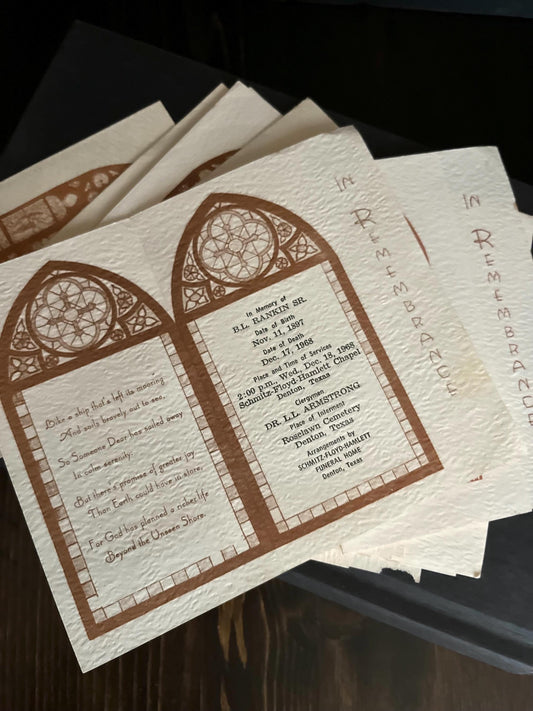 Like a ship that's left its mooring
And sails bravely out to sea,
So Someone Dear has sailed away
In calm serenity.
But there's promise of greater joy
Than Earth could have in store,
For God has planned a richer life
Beyond the Unseen Shore.
In Memory of
B.L. RANKIN SR.
Date of Birth
Nov. 11, 1897
Date of Death
Dec. 17, 1968
Place and Time of Services
2:00 p.m., Wed., Dec. 18, 1968
Schmitz-Floyd-Hamlett Chapel
Denton, Texas
Clergyman
DR. L.L. ARMSTRONG
Place of Interment
Roselawn Cemetery
Denton, Texas
Arrangements by
SCHMITZ-FLOYD-HAMLETT
FUNERAL HOME
Denton, Texas
IN
REMEMBRANCE
IN
REMEMBRANCE